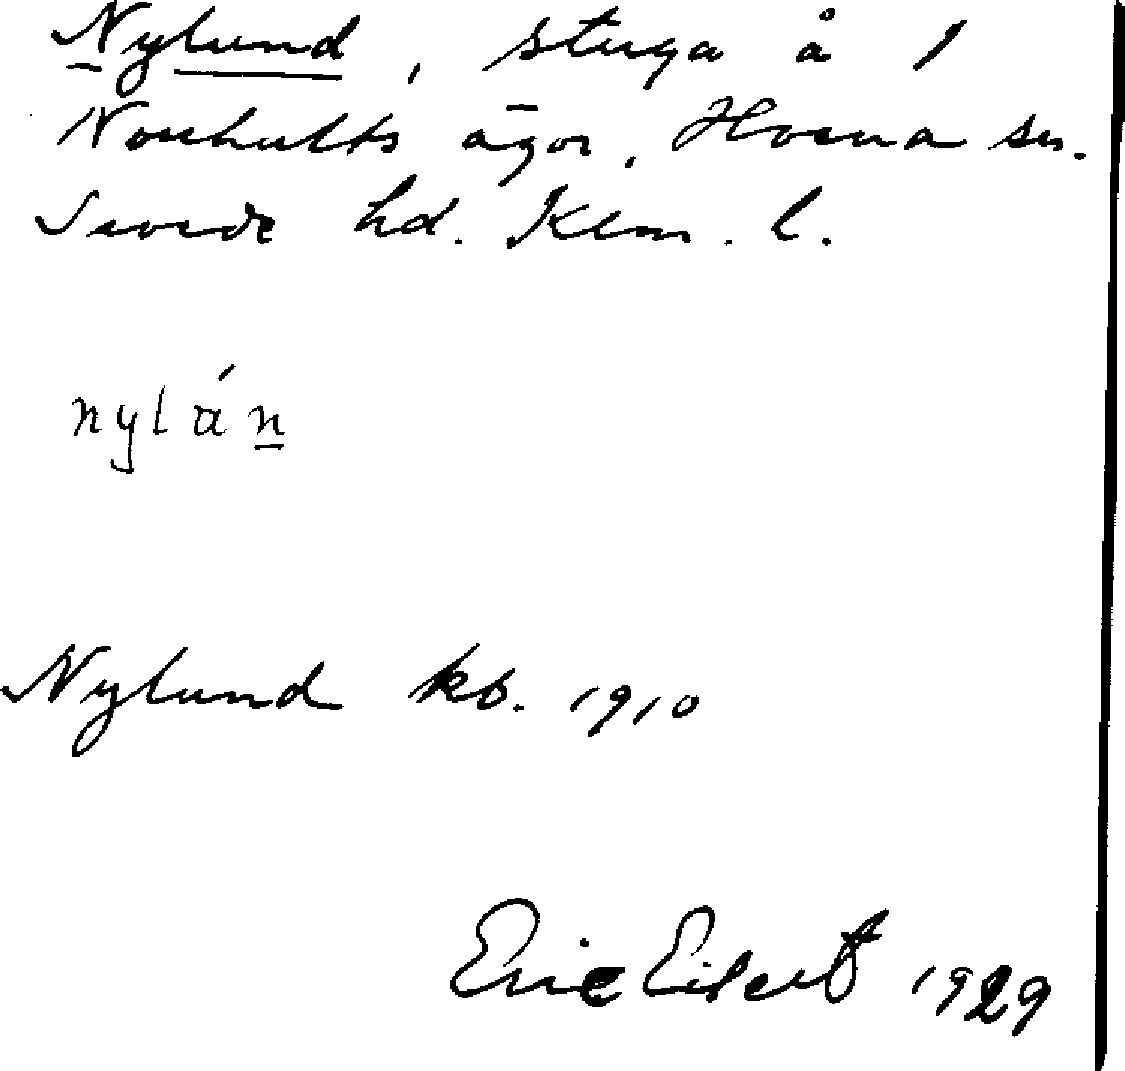 Nylund, stuga å 1
Norrhults ägor. Horna sn.
Sevede hd. Klm. l.
nylán
Nylund kb. 1910
Eric Eilert 1929